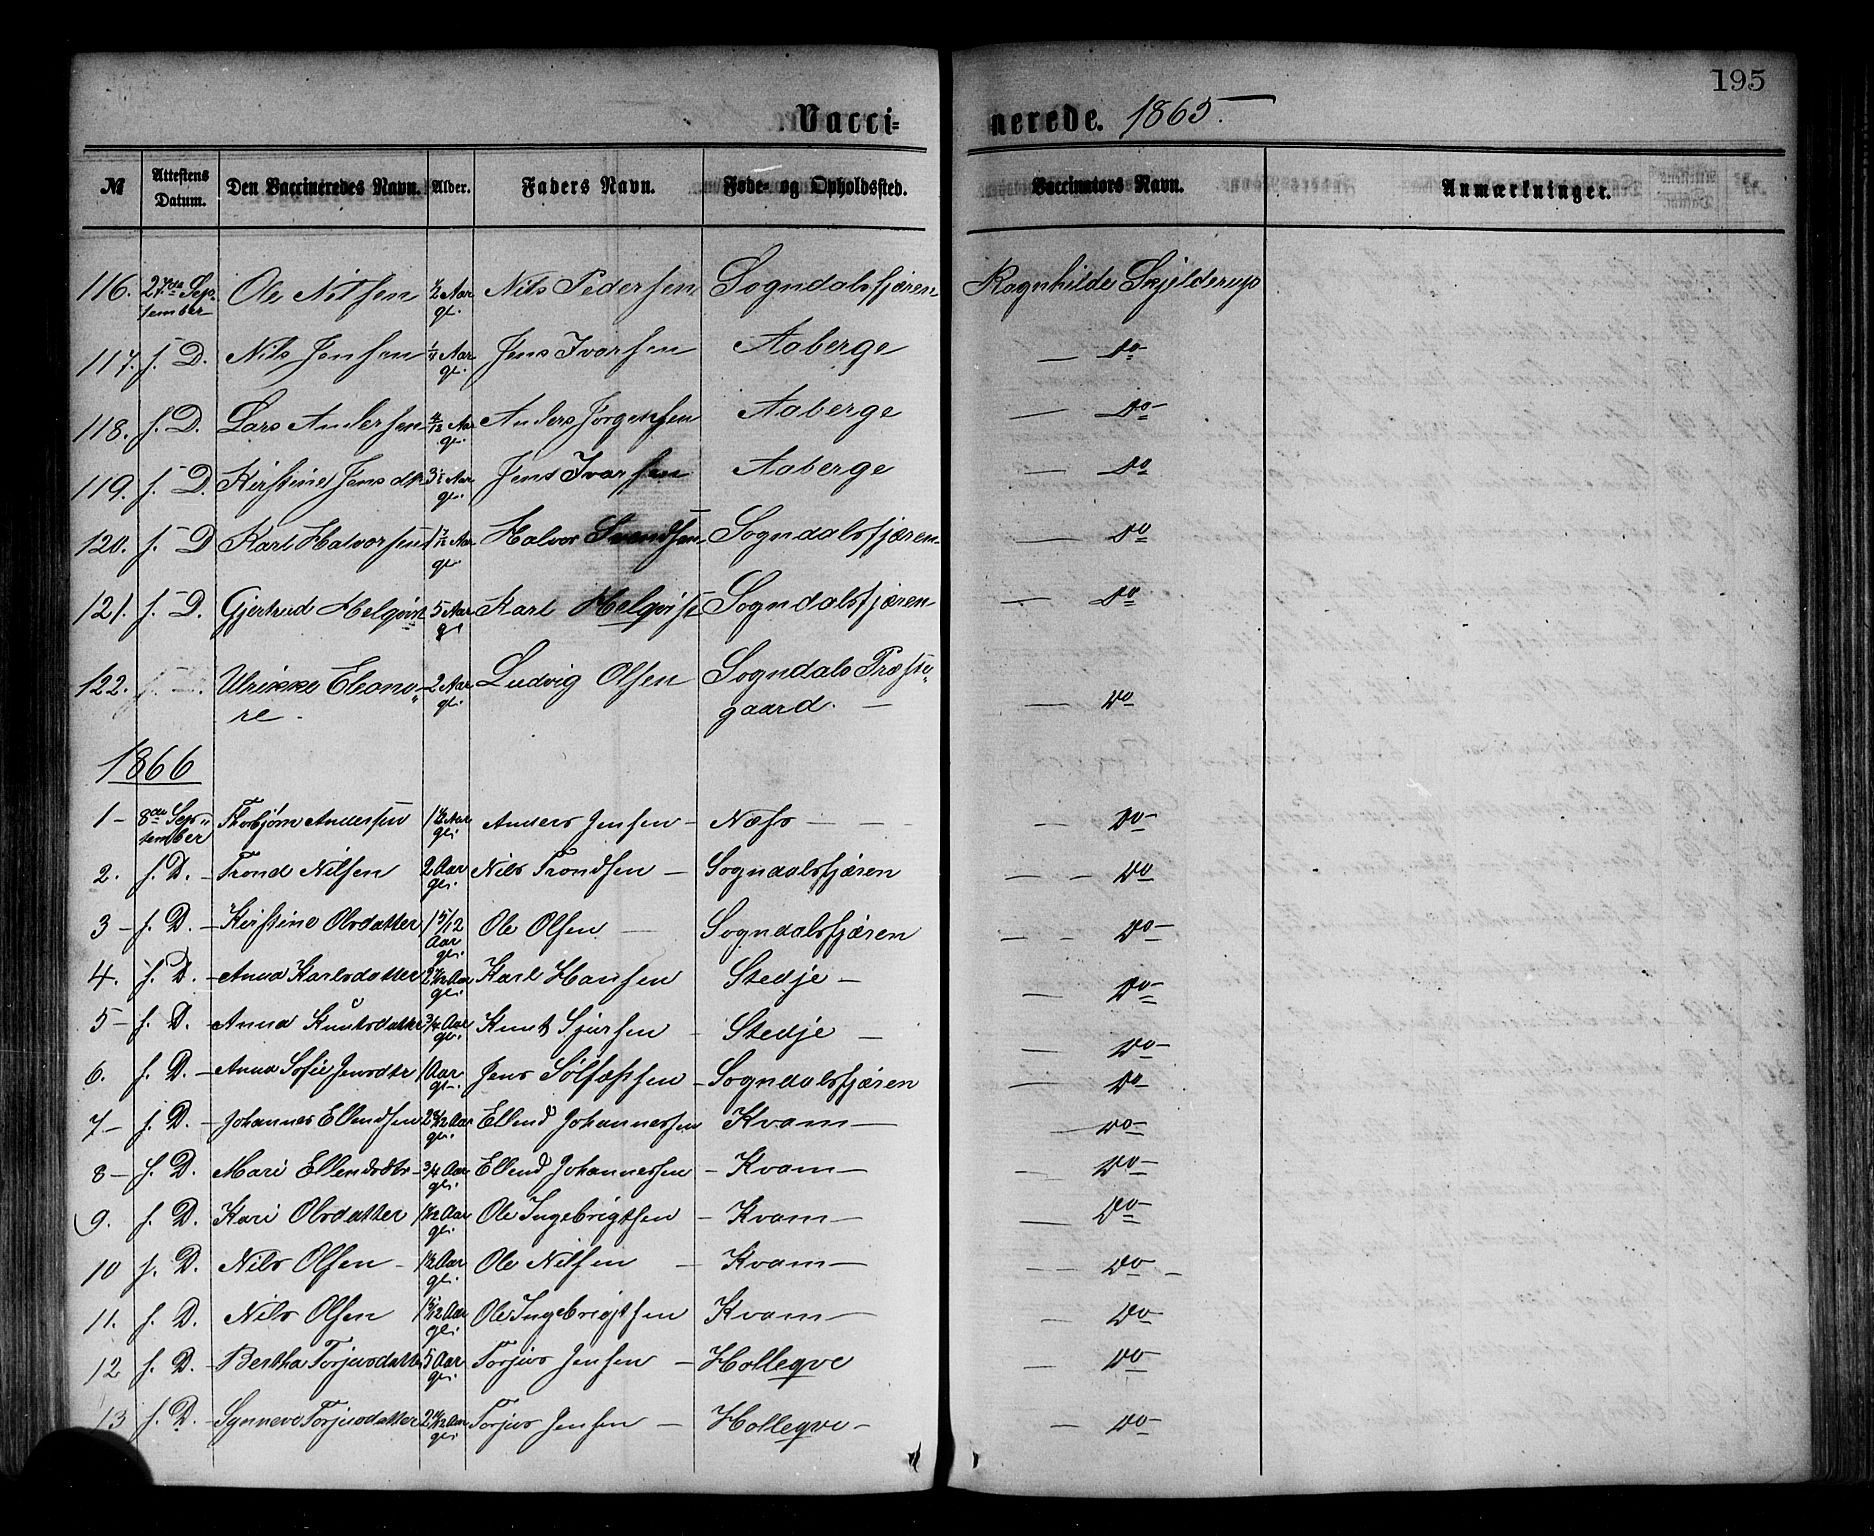 195
Vacci-nerede. 1865.
№ Attestens Datum. Den Vaccineredes Navn. Alder. Faders Navn. Føde- og Opholdssted. Vaccinators Navn. Anmærkninger.
116. 27de Sep- Ole Nilsen ½ Aar Nils Pedersen Sogndalsfjæren Ragnhilde Skjelderup
tember gl.
117. s. D. Nils Jensen ¼ Aar Jens Ivarsen Aaberge — Do
gl.
118. s. D. Lars Andersen Aar Anders Jørgensen Aaberge — Do
gl.
119. s. D. Kirstine Jensdtr Aar Jens Ivarsen Aaberge — Do
gl.
120. s. D Karl Halvorsen Aar Halvor Svendsen Sogndalsfjæren — Do
gl.
121. s. D. Gjertrud Helqvist 5 Aar Karl Helqvist Sogndalsfjæren — Do
gl
122. Ulrikke Eleono- 2 Aar Ludvig Olsen Sogndals Præste-
re. gl. gaard. — Do
1866
1 - 8de Sep- Thorbjørn Andersen Aar Anders Jensen - Næss — Do
tember gl.
2. s. D. - Trond Nilsen 2 Aar Nils Trondsen - Sogndalsfjæren — Do
gl.
3 - s. D. - Kirstine Olsdatter 1 5/12 Ole Olsen — Sogndalsfjæren — Do
Aar
gl.
4. s. D. - Anna Karlsdatter Aar Karl Hansen Stedje - — Do
gl.
5 - s. D. - Anna Knutsdatter ¾ Aar Knut Sjursen - Stedje - — Do
gl.
6. s. D. - Anna Sofie Jensdtr 1 Aar Jens Sølfæstsen - Sogndalsfjæren — Do
gl.
7 - s. D. - Johannes Ellendsen Aar Ellend Johannessen Kvam — Do
gl.
8 - s. D. - Mari Ellendsdtr ¾ Aar Ellend Johannessen - Kvam — Do
gl.
9. s. D. - Kari Olsdatter Aar Ole Ingebrigtsen - Kvam — Do
gl.
10 s. D. - Nils Olsen - Aar Ole Nilsen - Kvam — Do
gl.
11. s. D. - Nils Olsen Aar Ole Ingebrigtsen - Kvam — Do
gl.
12 s. D. - Bertha Torjusdatter 5 Aar Torjus Jensen - Holleqve — Do
gl.
13 s. D. - Synneve Torjusdatter Aar Torjus Jensen - Holleqve - — Do
gl.